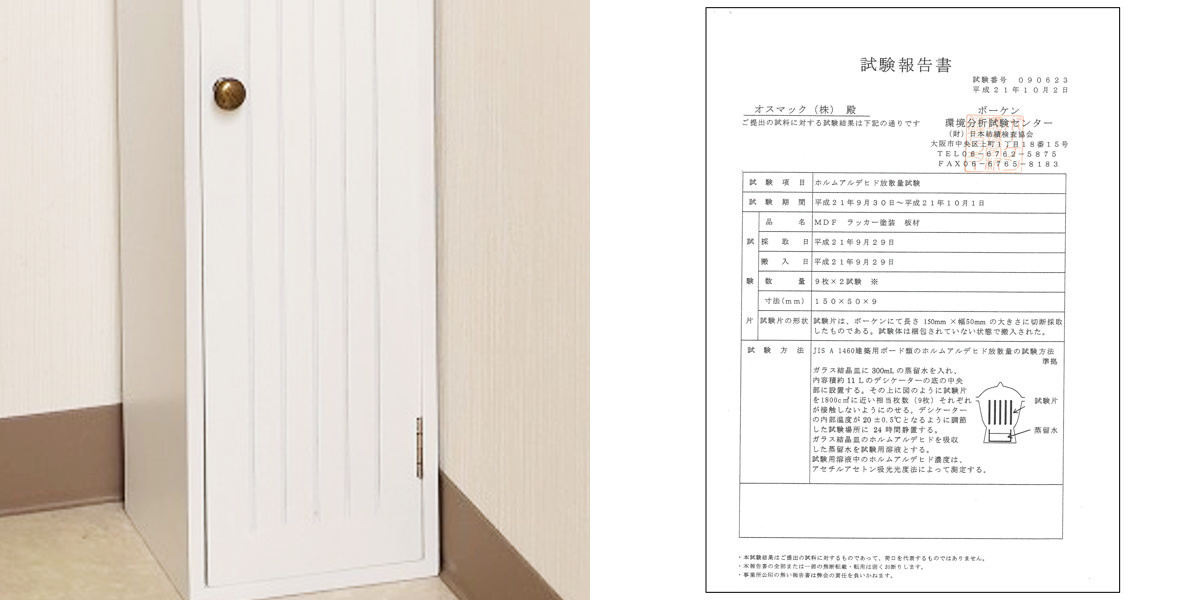 試験報告書
試験番号 090623
平成21年10月2日
オスマック（株） 殿
ボーケン
ご提出の試料に対する試験結果は下記の通りです
環境分析試験センター
（財）日本紡績検査協会
大阪市中央区上町1丁目18番15号
TEL06-6762-5875
FAX06-6765-8183
試験項目 ホルムアルデヒド放散量試験
試験期間 平成21年9月30日～平成21年10月1日
試験片
品名 MDF ラッカー塗装 板材
採取日 平成21年9月29日
搬入日 平成21年9月29日
数量 9枚×2試験 ※
寸法(mm) 150×50×9
試験片の形状 試験片は、ボーケンにて長さ 150mm ×幅50mm の大きさに切断採取
したものである。試験体は梱包されていない状態で搬入された。
試験方法 JIS A 1460建築用ボード類のホルムアルデヒド放散量の試験方法
準拠
ガラス結晶皿に 300mL の蒸留水を入れ、
内容積約 11 L のデシケーターの底の中央
部に設置する。その上に図のように試験片
を1800c㎡に近い相当枚数（9枚）それぞれ
が接触しないようにのせる。デシケーター
の内部温度が 20 ±0.5℃となるように調節
した試験場所に 24 時間静置する。
ガラス結晶皿のホルムアルデヒドを吸収
した蒸留水を試験用溶液とする。
試験用溶液中のホルムアルデヒド濃度は、
アセチルアセトン吸光光度法によって測定する。
試験片
蒸留水
・本試験結果はご提出の試料に対するものであって、荷口を代表するものではありません。
・本報告書の全部または一部の無断転載・転用は固くお断りします。
・事業所公印の無い報告書は弊会の責任を負いかねます。